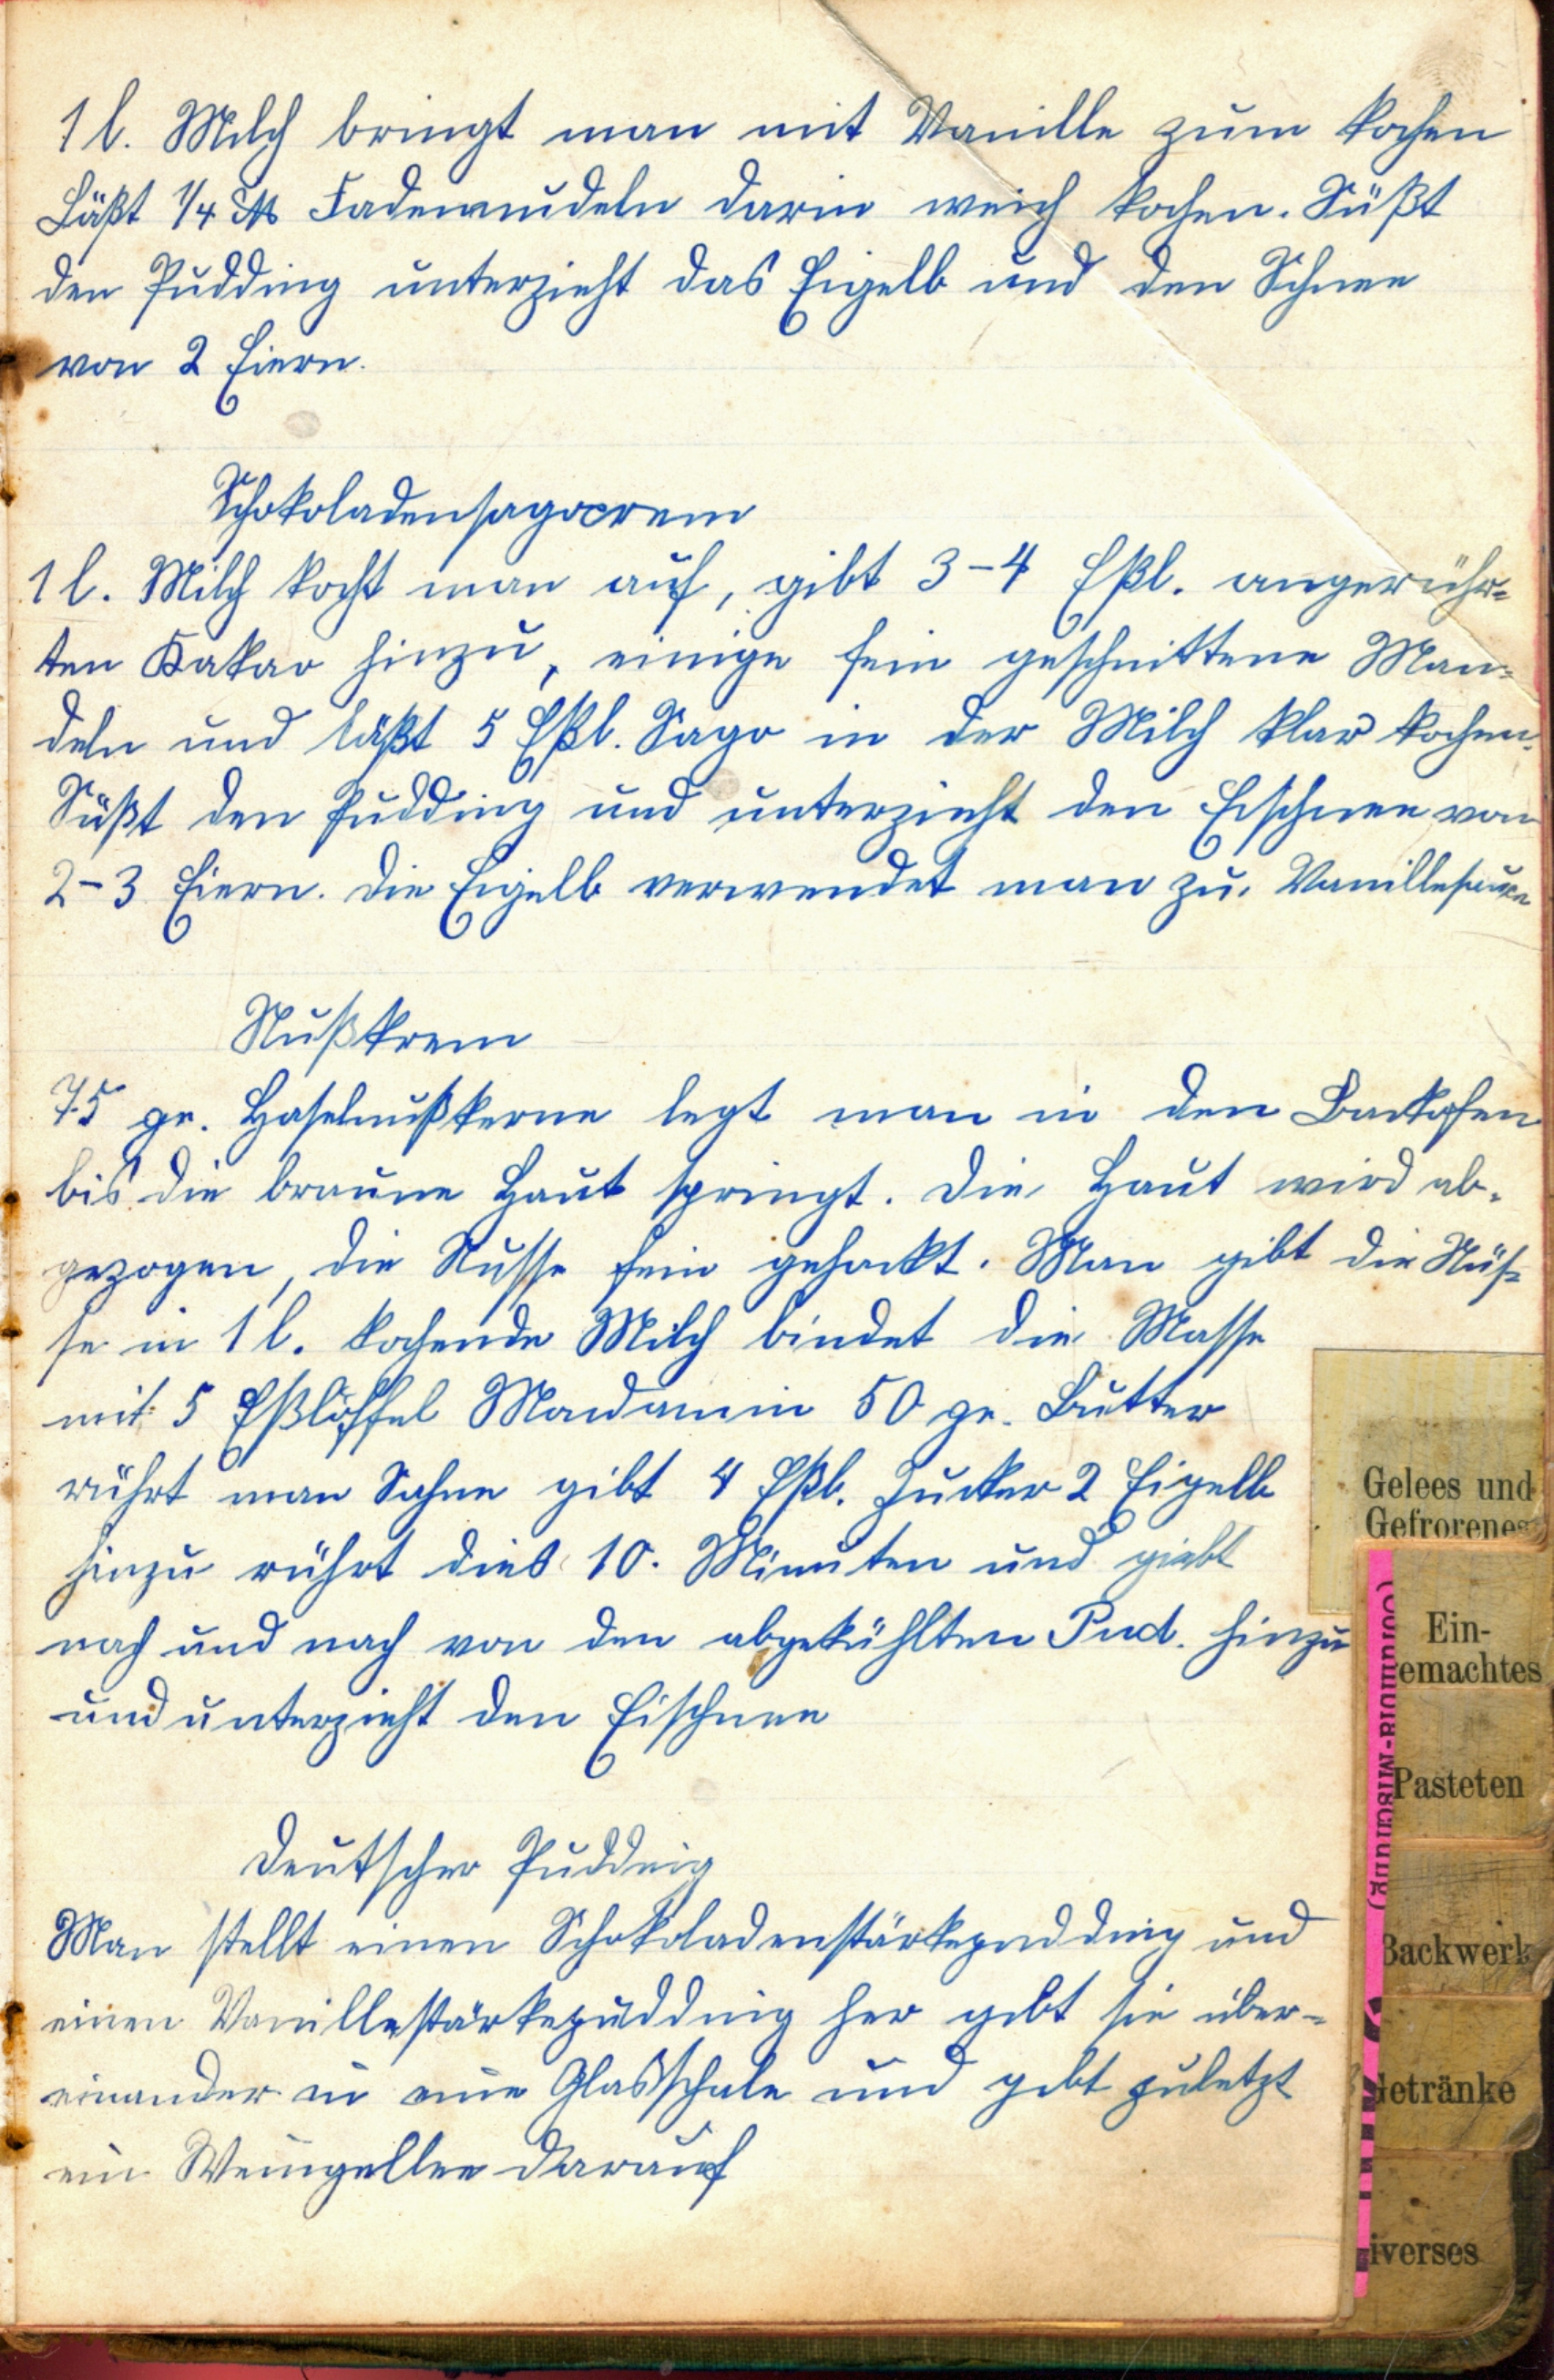 1 l. Milch bringt man mit Vanille zum kochen
Läßt 1/4 ℔ Fadennudeln darin weich kochen. Süßt
den Pudding unterzieht das Eigelb und den Schnee
von 2 Eiern.
Schokoladensagocrem
1 l. Milch kocht man auf, gibt 3-4 Eßl. angerühr=
ten Kakao hinzu, einige fein geschnittene Man=
deln und läßt 5 Eßl. Sago in der Milch klar kochen.
Süßt den Pudding und unterzieht den Eischnee von
2-3 Eiern. Die Eigelb verwendet man zu. Vanillesauce
Nußkrem
75 gr. Haselnußkerne legt man in den Backofen
bis die braune Haut springt. Die Haut wird ab-
gezogen, die Nusse fein gehackt. Man gibt die Nüs=
se in 1 l. kochende Milch bindet die Masse
mit 5 Eßlöffel Mondamin 50 gr. Butter
rührt man Sahne gibt 4 Eßl. Zucker 2 Eigelb
hinzu rührt dies 10. Minuten und giebt
nach und nach von den abgekühlten Pud. hinzu
und unterzieht den Eischnee
Deutscher Pudding
Man stellt einen Schokoladenstärkepudding und
einen Vanillestärkepudding her gibt sie über-
einander in eine Glasschale und gibt zuletzt
ein Weingellee darauf
Gelees und
Gefrorenes
Ein-
emachtes
Pasteten
Backwerk
Getränke
iverses
-Mischung)